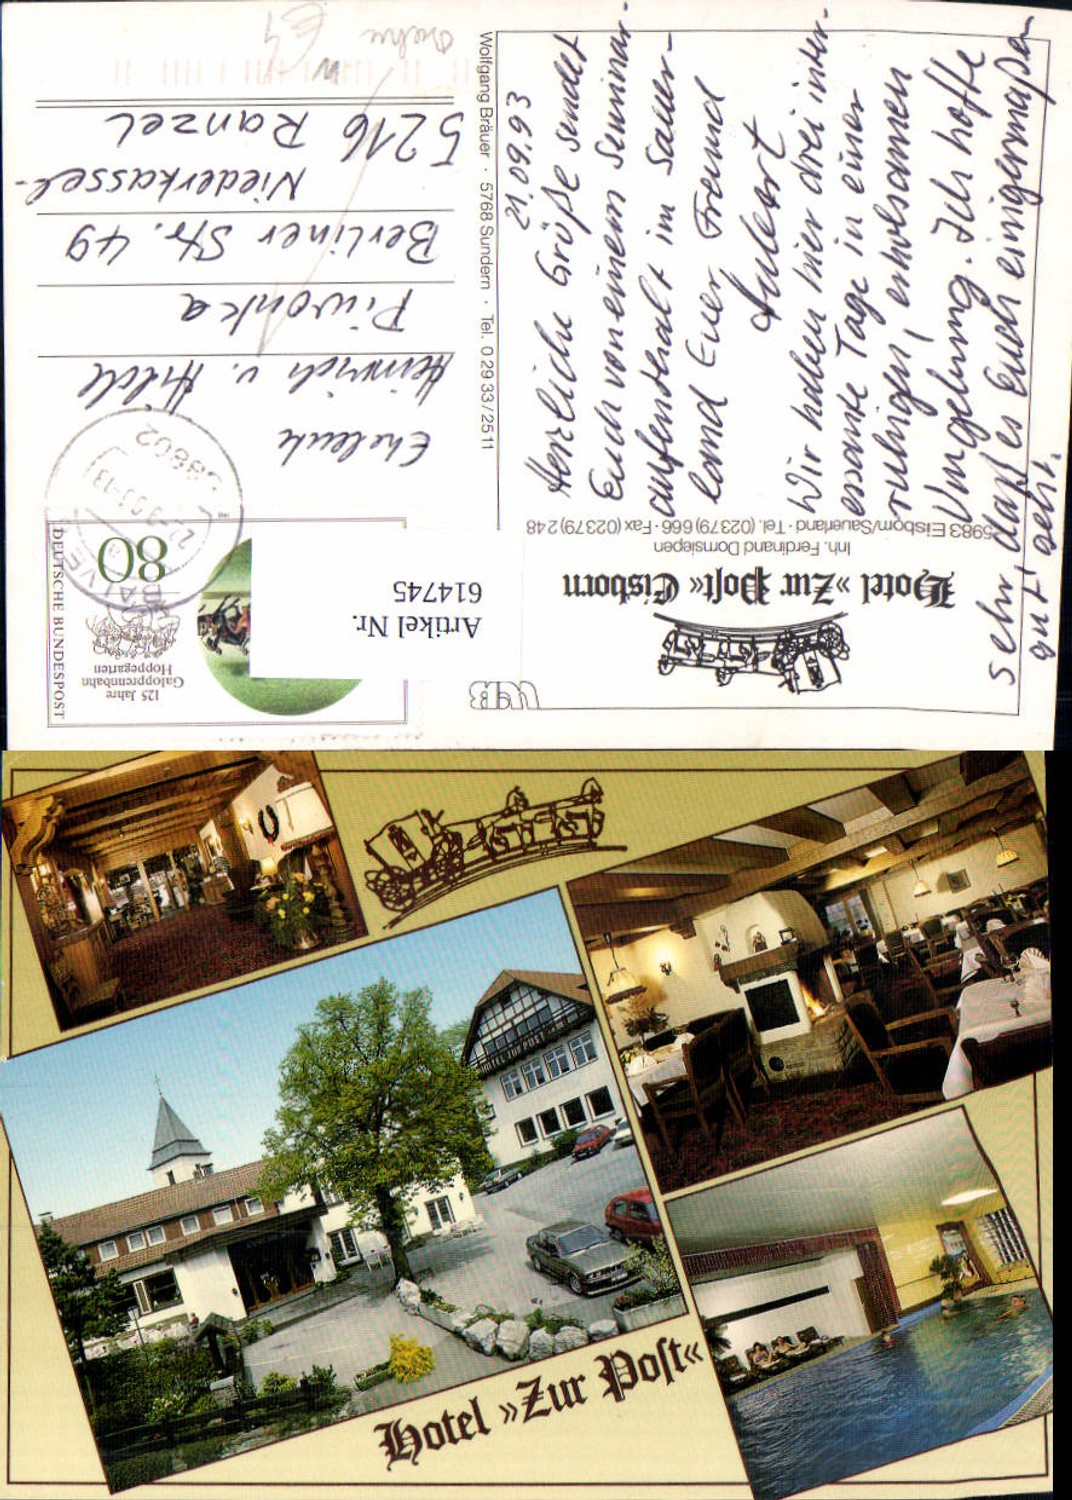 21.09.93
Herzliche Grüße sendet
Euch von einem Seminar-
aufenthalt im Sauer-
land Euer Freund
Wir haben hier drei inter-
essante Tage in einer
ruhigen, erholsamen
Umgebung. Ich hoffe
sehr, daß es Euch einigermaßen
gut geht.
Wolfgang Bräuer · 5768 Sundern · Tel. 0 29 33 / 25 11
Eheleute
Heinrich u. Hilde
Piwonka
Berliner Str. 49
Niederkassel-
5216 Ranzel
DEUTSCHE BUNDESPOST
80
125 Jahre
Galopprennbahn
Hoppegarten
58802
Artikel Nr.
614745
Hotel »Zur Post« Eisborn
Inh. Ferdinand Dornsiepen
5983 Eisborn/Sauerland · Tel. (02379) 666 · Fax (02379) 248
HOTEL ZUR POST
Hotel »Zur Post«